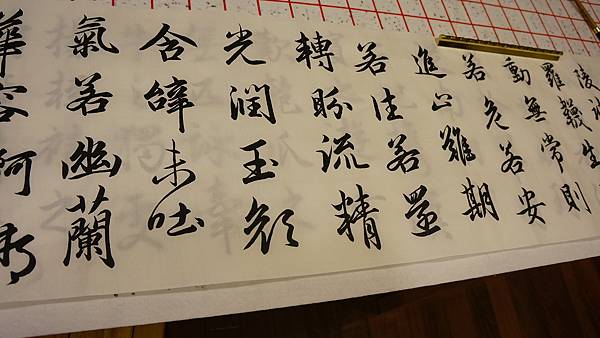 陵波
羅韈生
動無常則
若危若安
進止難期
若往若還
轉眄流精
光潤玉顏
含辭未吐
氣若幽蘭
華容阿那